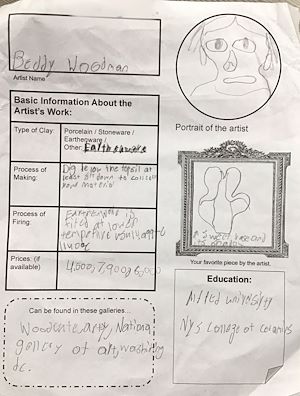 Beddy Woodman
Artist Name
Portrait of the artist
Basic Information About the
Artist's Work:
Type of Clay:
Porcelain / Stoneware /
Earthenware /
Other: Earthenware
Process of
Making:
Dig below the topsoil at
least down to collect
your material
Process of
Firing:
Earthenware is
fired at lower
Prices: (if
available)
4,000, 7,900, 6,000
Can be found in these galleries...
Woodcute arty, National
gallery of art, washinton
dc.
A sweet vase and
Your favorite piece by the artist.
Education:
Alfred university
Nys college of ceramics